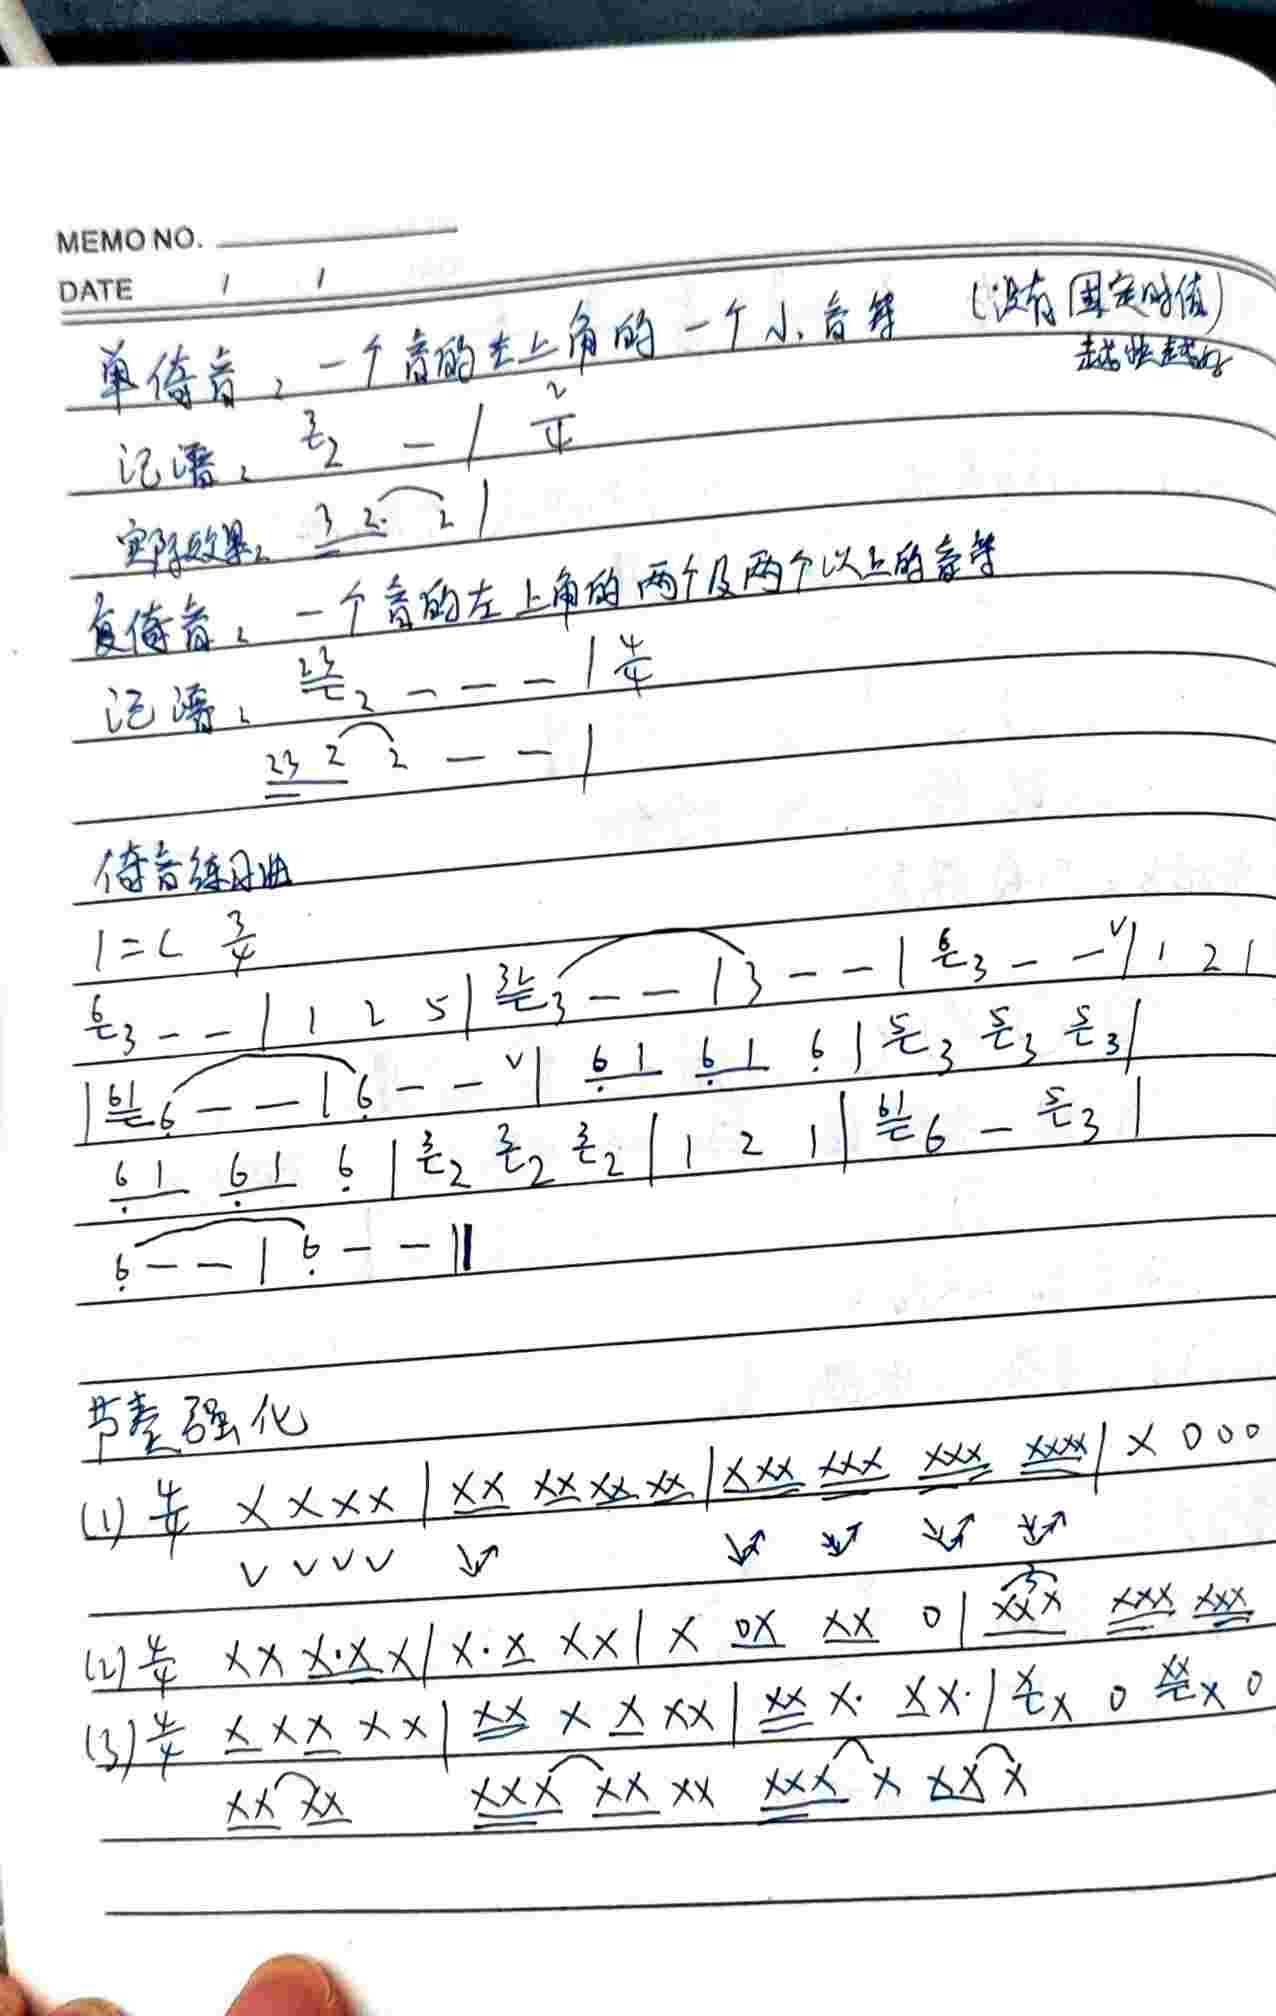 MEMO NO.
DATE / /
单倚音: 一个音的左上角的一个小音符 (没有固定时值)
越快越好
记谱: 3 2 - | 2/4
实际效果: 3 2· 2 |
复倚音: 一个音的左上角的两个及两个以上的音符
记谱: 23 2 - - - | 4/4
23 2 2 - - |
倚音练习曲
1=C 3/4
6 3 - - | 1 2 5 | 35 3 - - | 3 - - | 6 3 - - ∨ | 1 2 1
| 61 6 - - | 6 - - ∨ | 6 1 6 1 6 | 5 3 5 3 5 3 |
6 1 6 1 6 | 3 2 3 2 3 2 | 1 2 1 | 61 6 - 5 3 |
6 - - | 6 - - ‖
节奏强化
(1) 4/4 X X X X | XX XX XX XX | XXX XXX XXX XXXX | X 0 0 0
∨ ∨ ∨ ∨ ↘↗ ↘↗ ↘↗ ↘↗ ↘↗
(2) 4/4 X X X·X X | X· X X X | X 0X XX 0 | XXX XXX XXX
3
(3) 4/4 X X X X X | XX X X X X | XX X· X X· | X X 0 XX X 0
XX XX XXX XX X X XXX X XX X